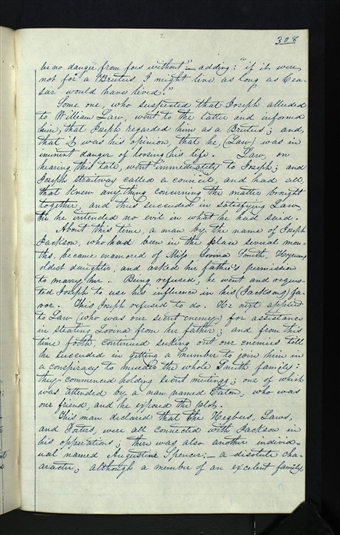 308
be no danger from foes without" — adding: "if it were
not for a Brutus I might live as long as Cea-
sar would have lived."
Some one, who suspected that Joseph alluded
to William Law, went to the latter and informed
him, that Joseph regarded him as a Brutus; and,
that it was his opinion, that he (Law) was in
iminent danger of loosing his life. Law, on
hearing this tale, went immediately to Joseph; and
Joseph straitway called a council, and had all
that knew anything concerning the matter brought
together, and thus succeeded in satisfying Law,
that he intended no evil in what he had said.
About this time, a man by the name of Joseph
Jackson, who had been in the place several mon-
ths, became enamored of Miss Lovina Smith, Hyrum's
oldest daughter, and asked her father's permission
to marry her. Being refused, he went and reques-
ted Joseph to use his influence in his (Jackson's) fa-
vor. This Joseph refused to do. He next applied
to Law (who was our secret enemy) for assistance
in stealing Lovina from her father; and from this
time forth continued seeking out our enemies till
he succeeded in getting a number to join him in
a conspiracy to murder the whole Smith family:
They commenced holding secret meetings; one of which
was attended by a man named Eaton, who was
our friend, and he exposed the plot.
This man declared that the Higbees, Laws,
and Fosters, were all connected with Jackson in
his opperations; there was also another individ-
ual named Augustine Spencer; — a disolute cha-
aracter, although a member of an excelent family